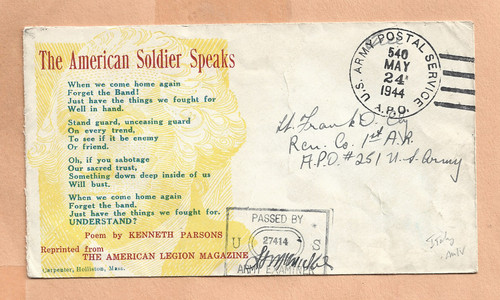 The American Soldier Speaks
When we come home again
Forget the Band!
Just have the things we fought for
Well in hand.
Stand guard, unceasing guard
On every trend,
To see if it be enemy
Or friend.
Oh, if you sabotage
Our sacred trust,
Something down deep inside of us
Will bust.
When we come home again
Forget the band.
Just have the things we fought for.
UNDERSTAND?
Poem by KENNETH PARSONS
Reprinted from
THE AMERICAN LEGION MAGAZINE
Carpenter, Holliston, Mass.
U.S. ARMY POSTAL SERVICE
540
MAY
24
1944
A.P.O.
Lt. Frank O.
Rcn. Co. 1st A.R.
A.P.O. #251 U.S. Army
PASSED BY
U 27414 S
ARMY EXAMINER
Italy